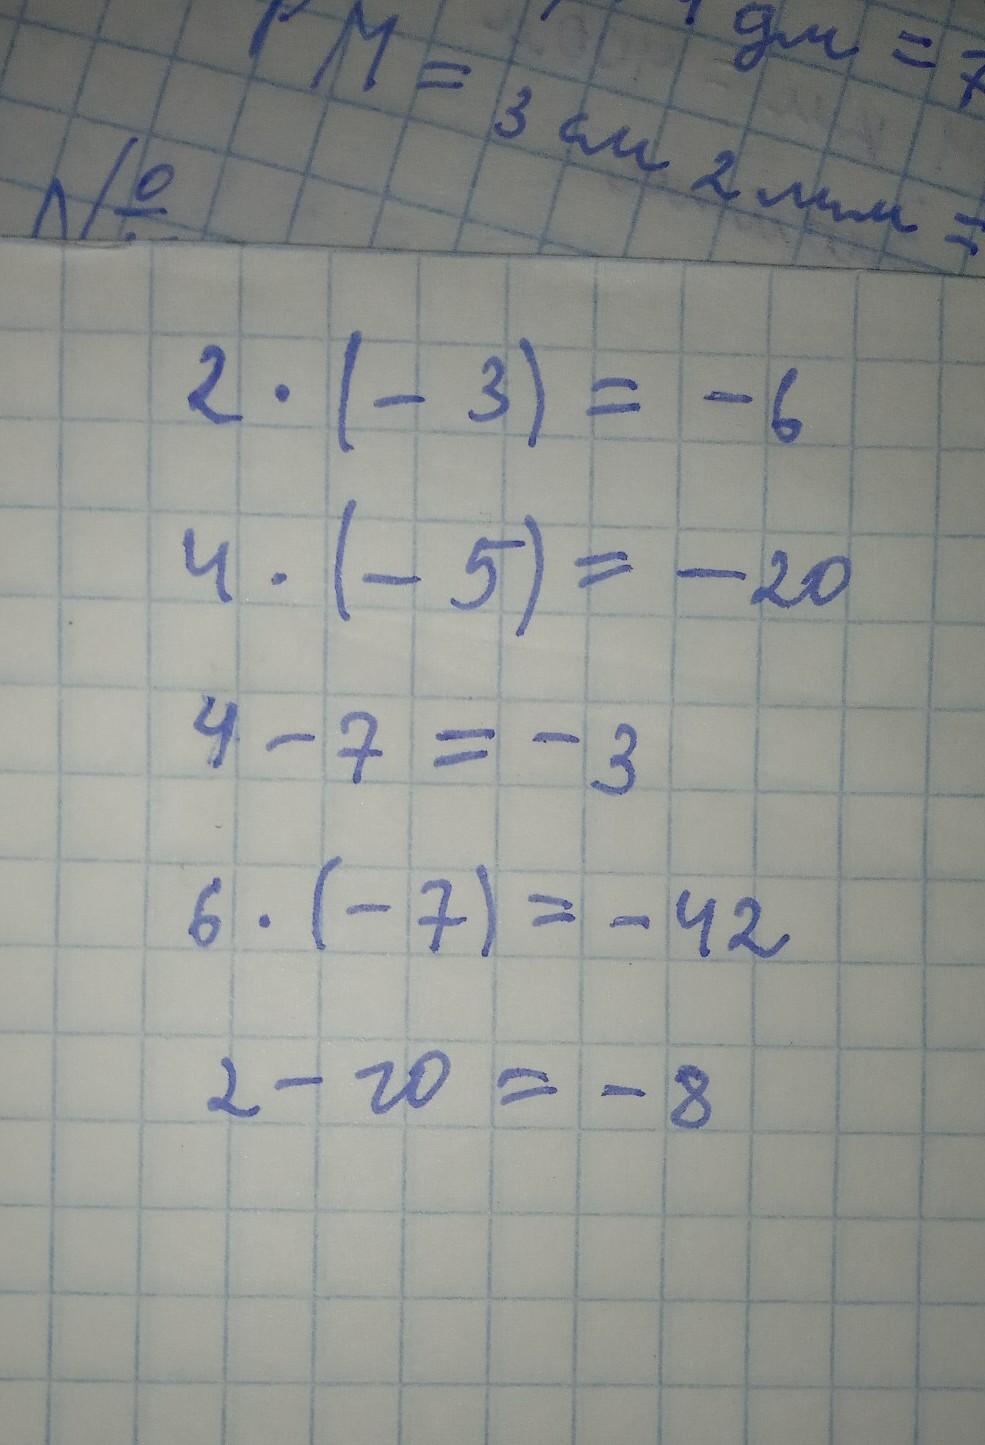 РМ = 
дм = 7
3 см 2 мм =
№
2 · (- 3) = - 6
4 · (- 5) = - 20
4 - 7 = - 3
6 · (- 7) = - 42
2 - 10 = - 8